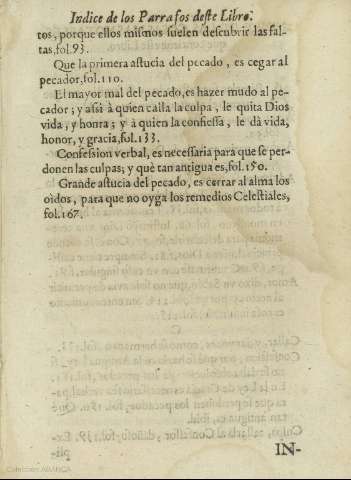 Indice de los Parrafos deste Libro.
tos, porque ellos mismos suelen descubrir las fal-
tas, fol.93.
Que la primera astucia del pecado, es cegar al
pecador, fol.110.
El mayor mal del pecado, es hazer mudo al pe-
cador; y assi à quien calla la culpa, le quita Dios
vida, y honra; y à quien la confiessa, le dà vida,
honor, y gracia, fol.133.
Confession verbal, es necessaria para que se per-
donen las culpas; y què tan antigua es, fol.150.
Grande astucia del pecado, es cerrar al alma los
oìdos, para que no oyga los remedios Celestiales,
fol.167.
IN-
Colección ABANCA